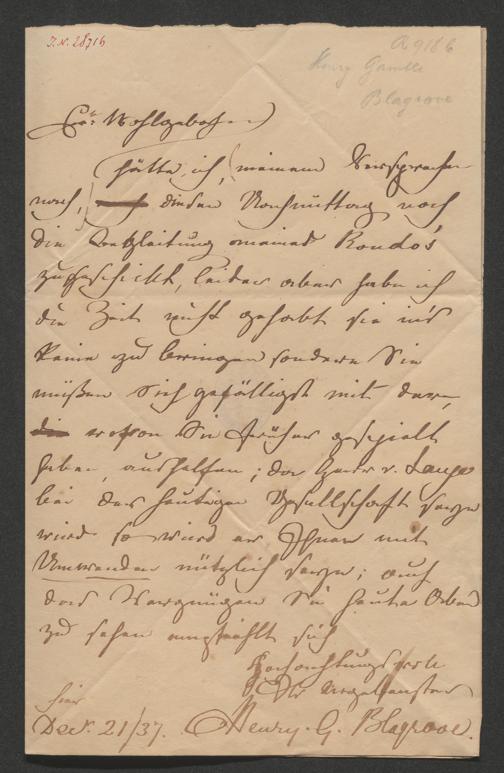 I.N. 28716
A 9186
Henry Gamble
Blagrove
Ew: Wohlgebohren
hätte ich, (meinem Versprechen
nach,) diesen Nachmittag noch
die Begleitung meines Rondo's
zugeschickt, leider aber habe ich
die Zeit nicht gehabt sie in's
Reine zu bringen sondern Sie
müßen sich gefälligst mit dem,
die woraus Sie früher gespielt
haben, aushelfen; da Herr v. Lange
bei der heutigen Gesellschaft seyn
wird so wird er Ihnen mit
Umwenden nützlich seyn; auf
das Vergnügen Sie heute Abend
zu sehen empfiehlt sich
Hochachtungsvoll
Ihr ergebenster
hier
Decr. 21/37. Henry. G. Blagrove.